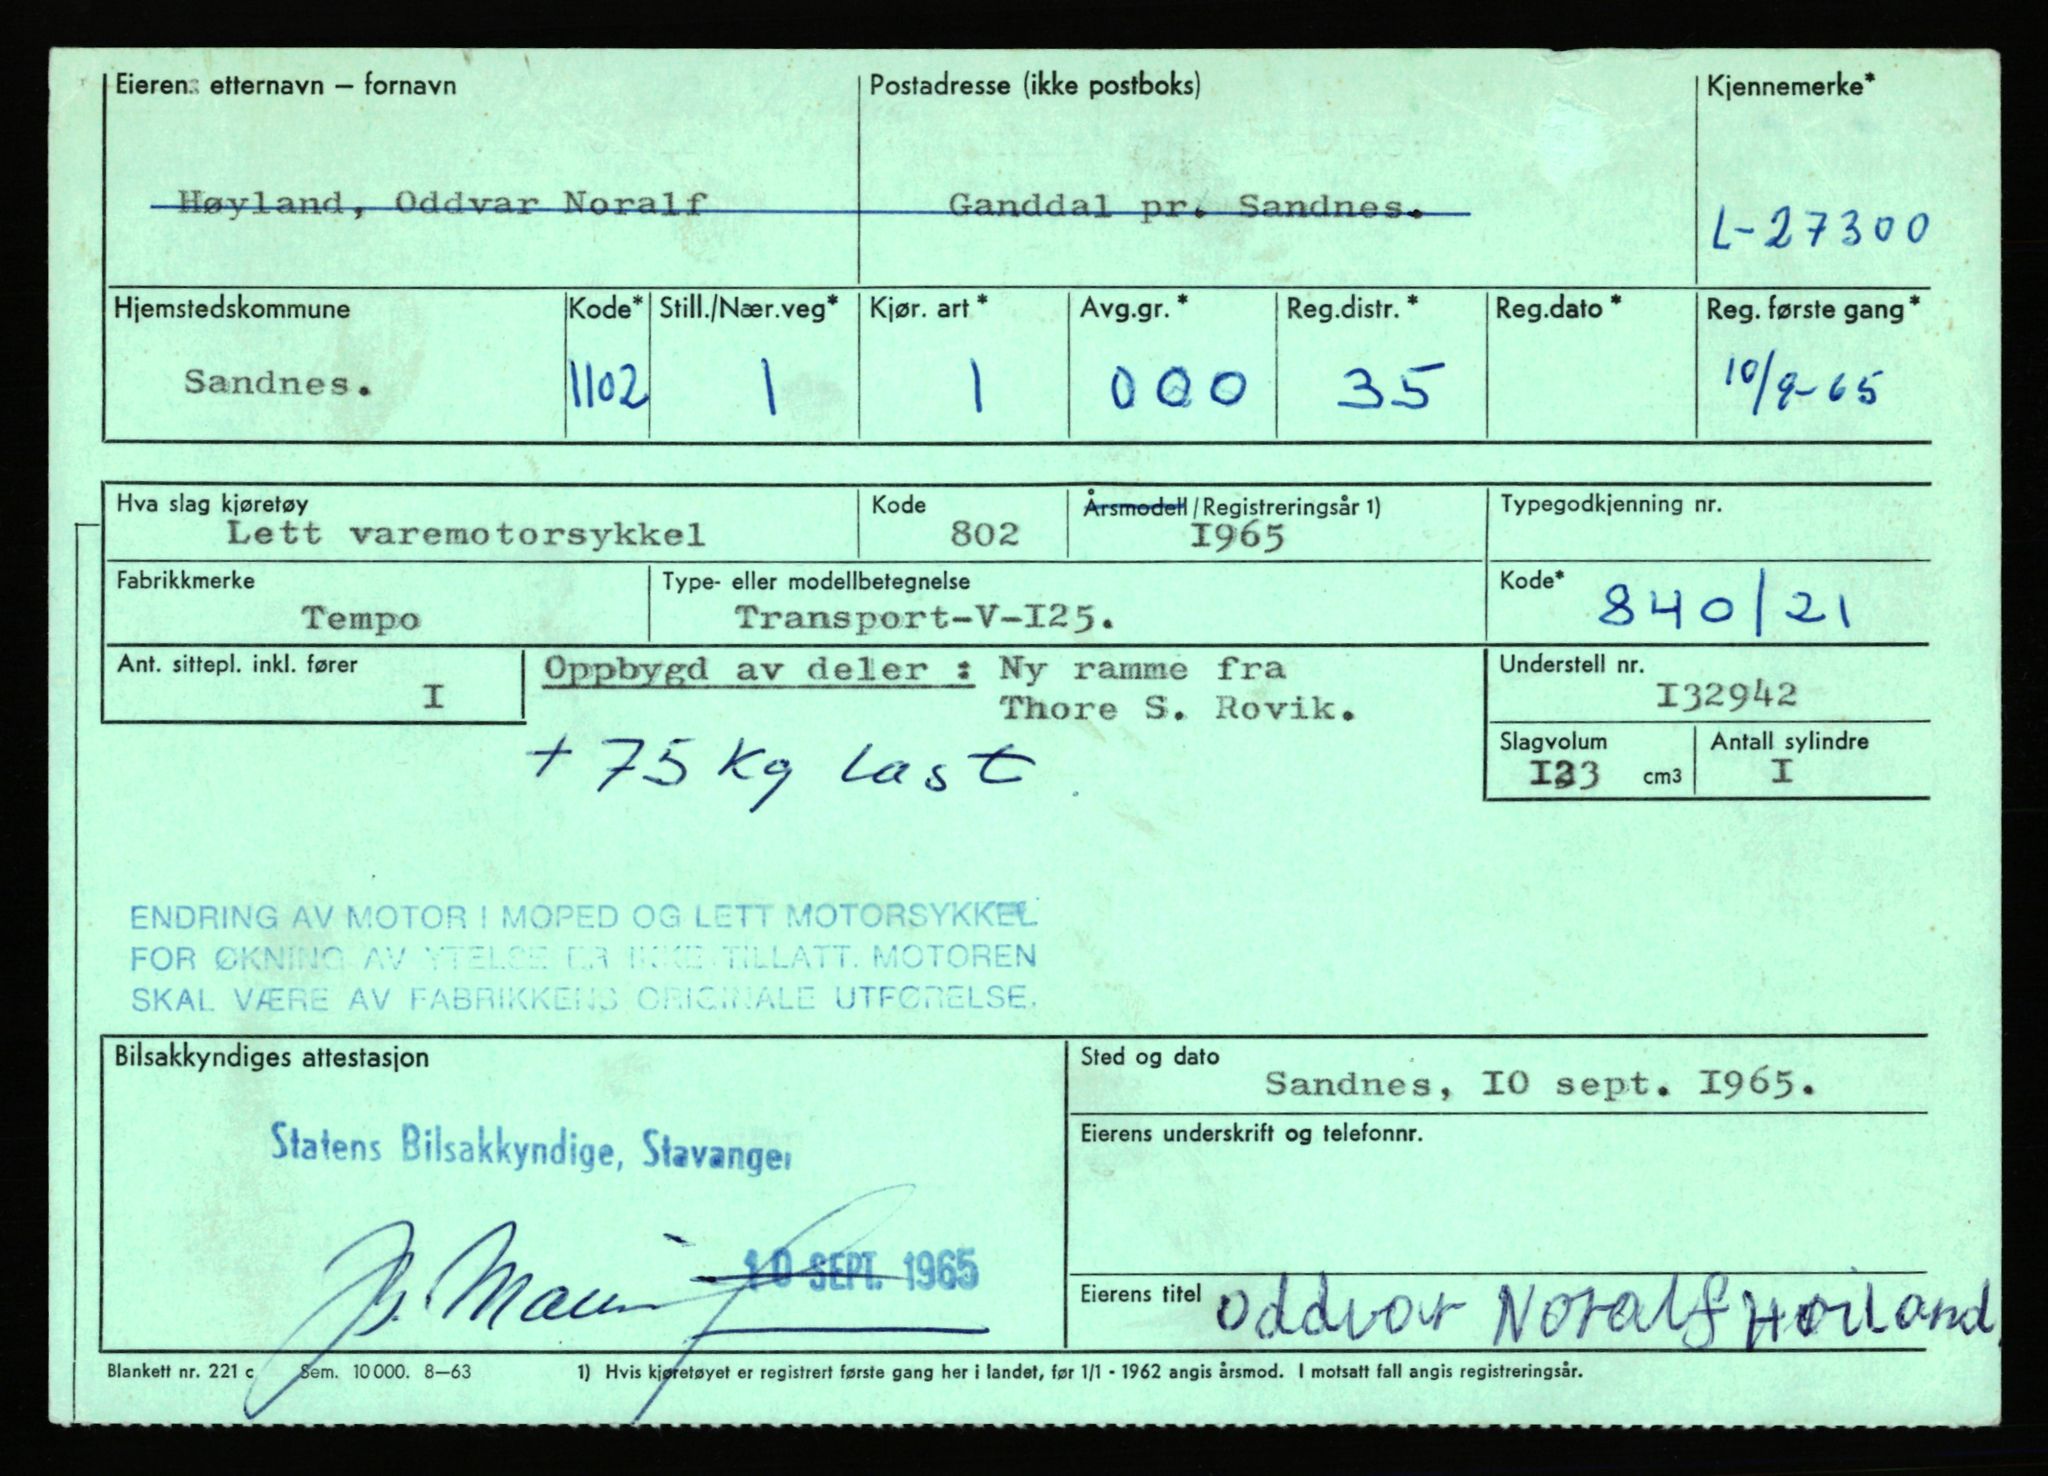 Eierens etternavn – fornavn
Postadresse (ikke postboks)
Kjennemerke*
Høyland, Oddvar Noralf
Ganddal pr. Sandnes.
L-27300
Hjemstedskommune
Kode*
Still./Nær.veg*
Kjør. art*
Avg.gr.*
Reg.distr.*
Reg.dato*
Reg. første gang*
Sandnes.
1102
1
1
000
35
10/9-65
Hva slag kjøretøy
Kode
Årsmodell/Registreringsår 1)
Typegodkjenning nr.
Lett varemotorsykkel
802
I965
Fabrikkmerke
Type- eller modellbetegnelse
Kode*
Tempo
Transport-V-I25.
840/21
Ant. sittepl. inkl. fører
I
Oppbygd av deler : Ny ramme fra
Thore S. Rovik.
Understell nr.
I32942
+ 75 kg last
Slagvolum
I23 cm3
Antall sylindre
I
ENDRING AV MOTOR I MOPED OG LETT MOTORSYKKEL
FOR ØKNING AV YTELSE ER IKKE TILLATT. MOTOREN
SKAL VÆRE AV FABRIKKENS ORIGINALE UTFØRELSE.
Bilsakkyndiges attestasjon
Sted og dato
Sandnes, IO sept. I965.
Statens Bilsakkyndige, Stavanger
Eierens underskrift og telefonnr.
10 SEPT. 1965
Eierens titel
Oddvar Noralf Høiland
Blankett nr. 221 c
Sem. 10000. 8–63
1) Hvis kjøretøyet er registrert første gang her i landet, før 1/1 - 1962 angis årsmod. I motsatt fall angis registreringsår.